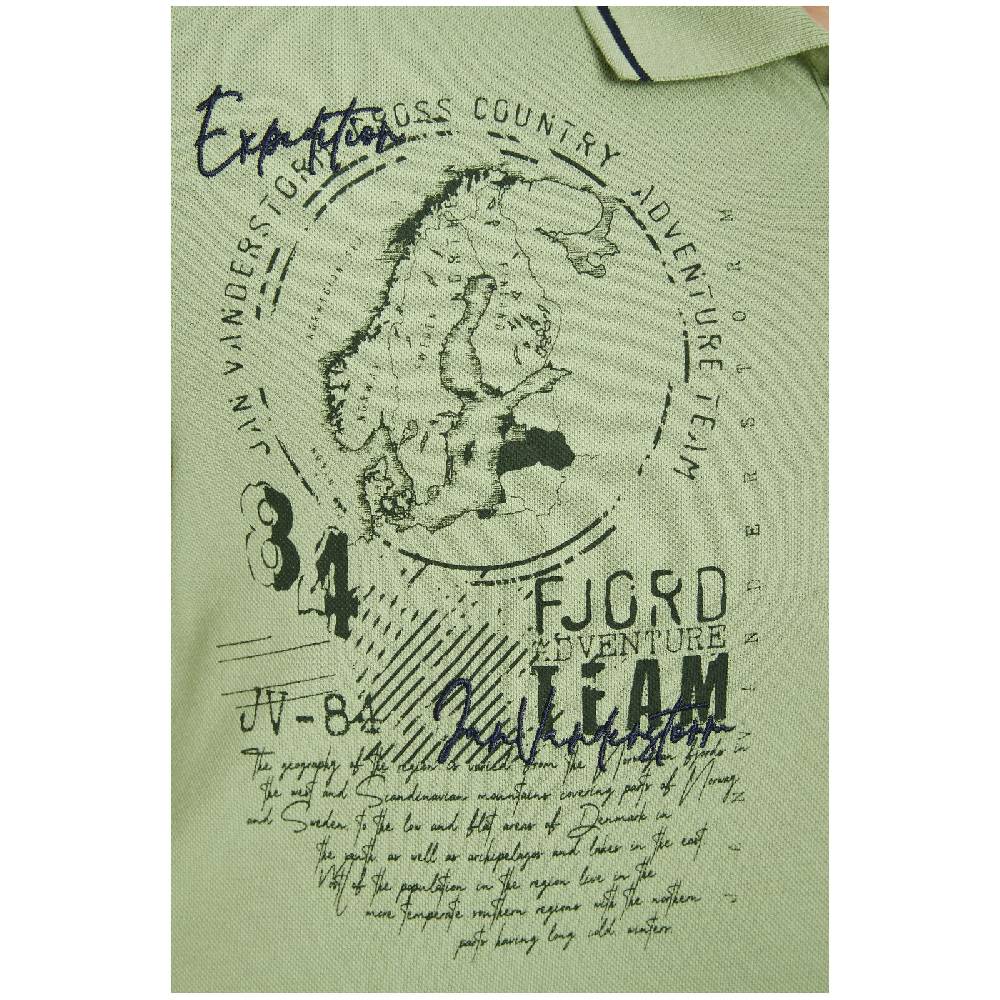 Expedition
JAN VANDERSTORM CROSS COUNTRY ADVENTURE TEAM
84
FJORD
ADVENTURE
TEAM
JV-84
JanVanderstorm
The geography of the region is varied from the Norwegian fjords in
the west and Scandinavian mountains covering parts of Norway
and Sweden, to the low and flat areas of Denmark in
the south, as well as archipelagos and lakes in the east
Most of the population in the region live in the
more temperate southern regions with the northern
parts having long cold winters.
JAN VANDERSTORM